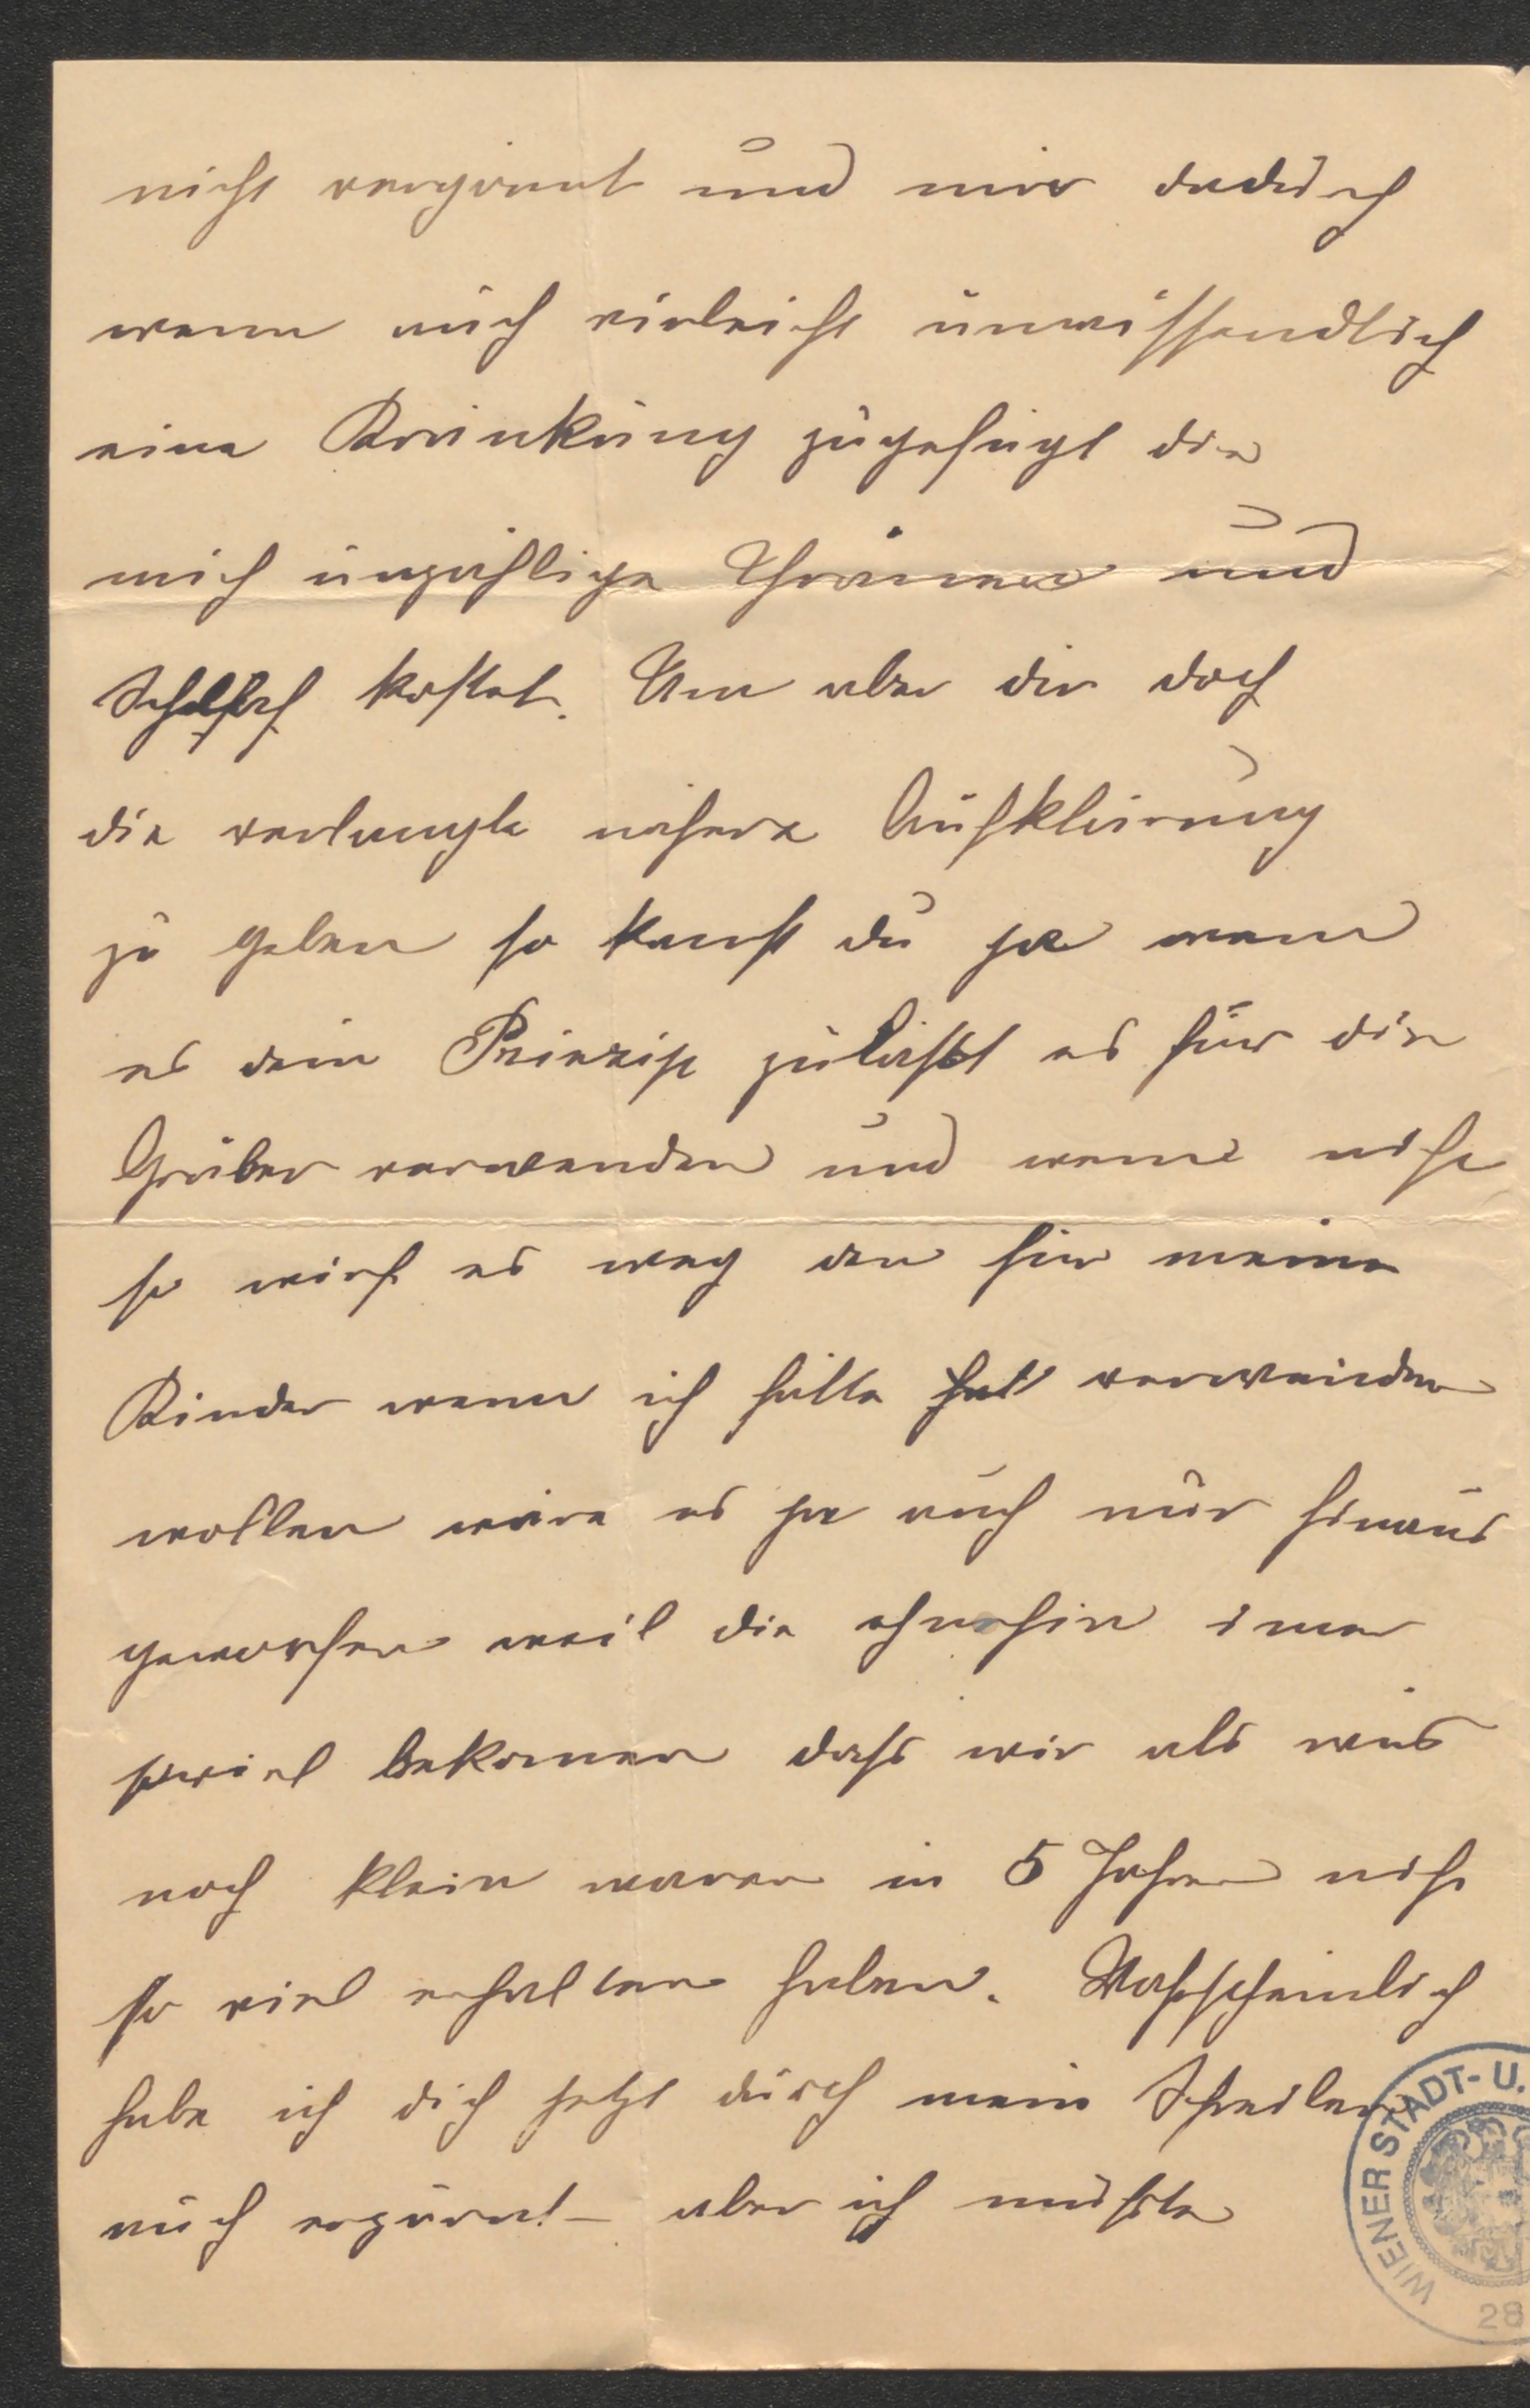 nicht vergönnt und mir dadurch
wenn auch vieleicht unwissendlich
eine Kränkung zugefügt die
mich unzählige Thränen und
kostet. Um aber dir doch
die verlangte nähere Aufklärung
zu geben so kanst du ja wenn
es dein Prinzip zuläßt es für die
Gräber verwenden und wenn nicht
so wirf es weg den für meine
Kinder wenn ich hätte verwenden
wollen wäre es ja auch nur hinaus
geworfen weil die ohnehin imer
soviel bekomen dass wir als wir
noch klein waren in 5 Jahren nicht
so viel erhalten haben. Wahrscheinlich
habe ich dich jetzt durch mein Schreiben
auch erzürnt – aber ich mußte
WIENER STADT- U.
28